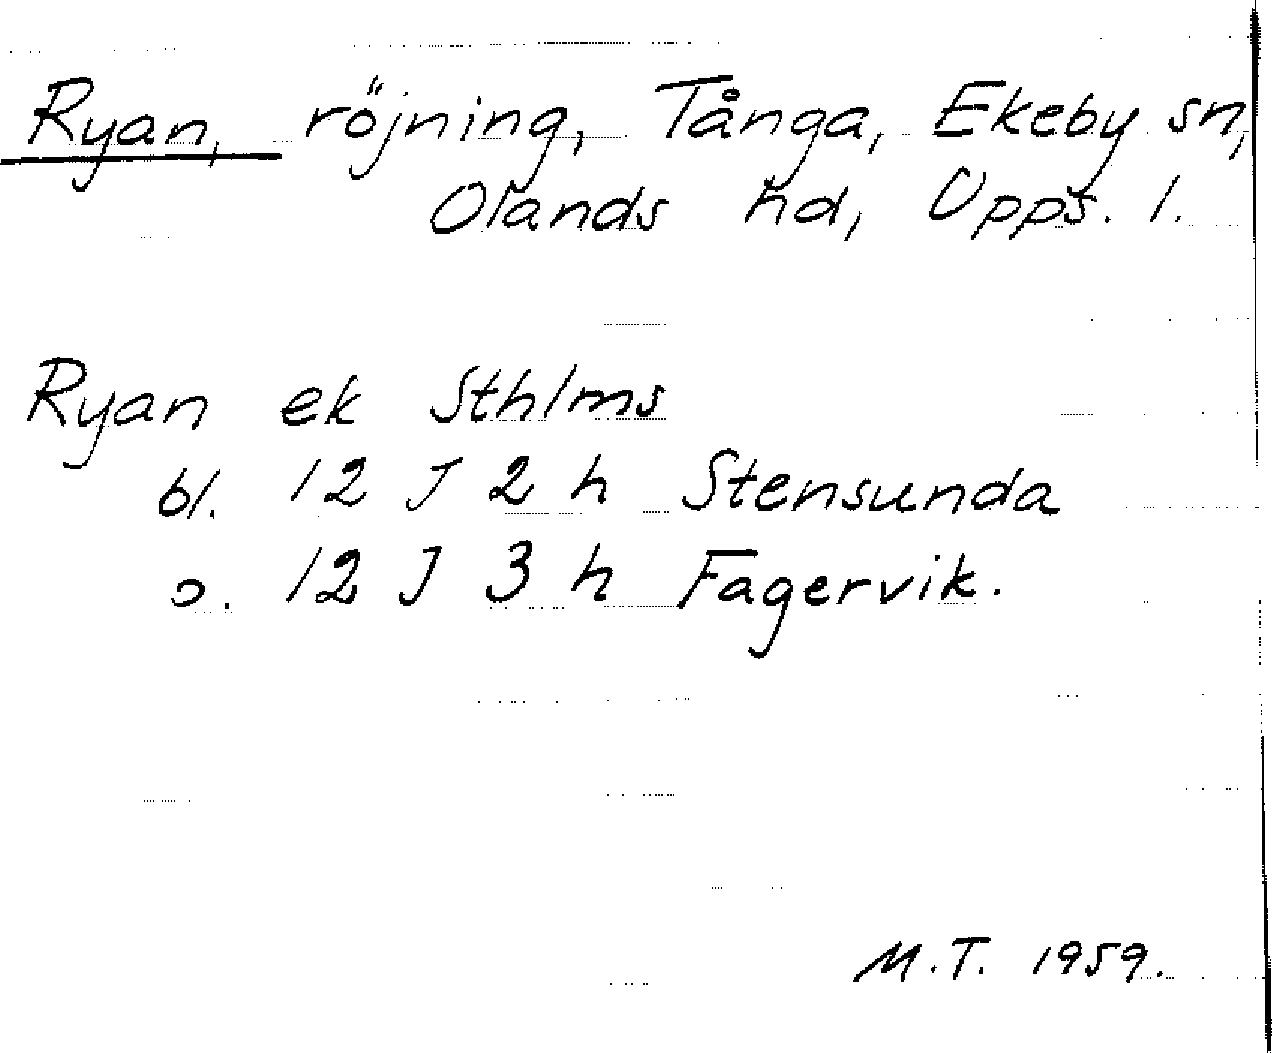 Ryan, röjning, Tånga, Ekeby sn,
Olands hd, Upps. l.
Ryan ek Sthlms
bl. 12 J 2 h Stensunda
o. 12 J 3 h Fagervik.
M.T. 1959.